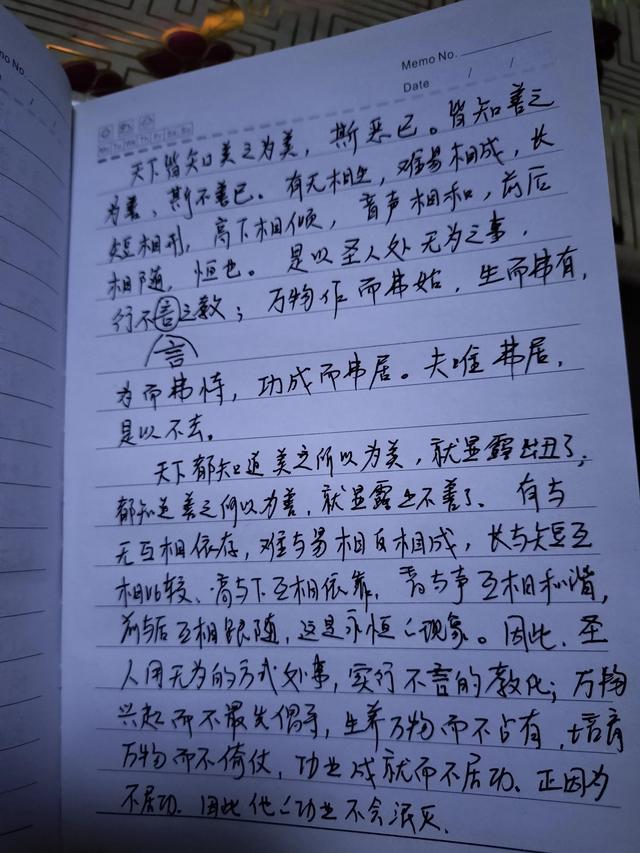 Memo No.
Memo No.
Date / /
Mo Tu We Th Fr Sa Su
天下皆知美之为美，斯恶已。皆知善之
为善，斯不善已。有无相生，难易相成，长
短相形，高下相倾，音声相和，前后
相随，恒也。是以圣人处无为之事，
行不言之教；万物作而弗始，生而弗有，
言
为而弗恃，功成而弗居。夫唯弗居，
是以不去。
天下都知道美之所以为美，就显露出丑了，
都知道善之所以为善，就显露出不善了。有与
无互相依存，难与易相反相成，长与短互
相比较、高与下互相依靠，音与声互相和谐，
前与后互相跟随，这是永恒的现象。因此，圣
人用无为的方式处事，实行不言的教化；万物
兴起而不最先倡导，生养万物而不占有，培育
万物而不倚仗，功业成就而不居功。正因为
不居功，因此他的功业不会泯灭。